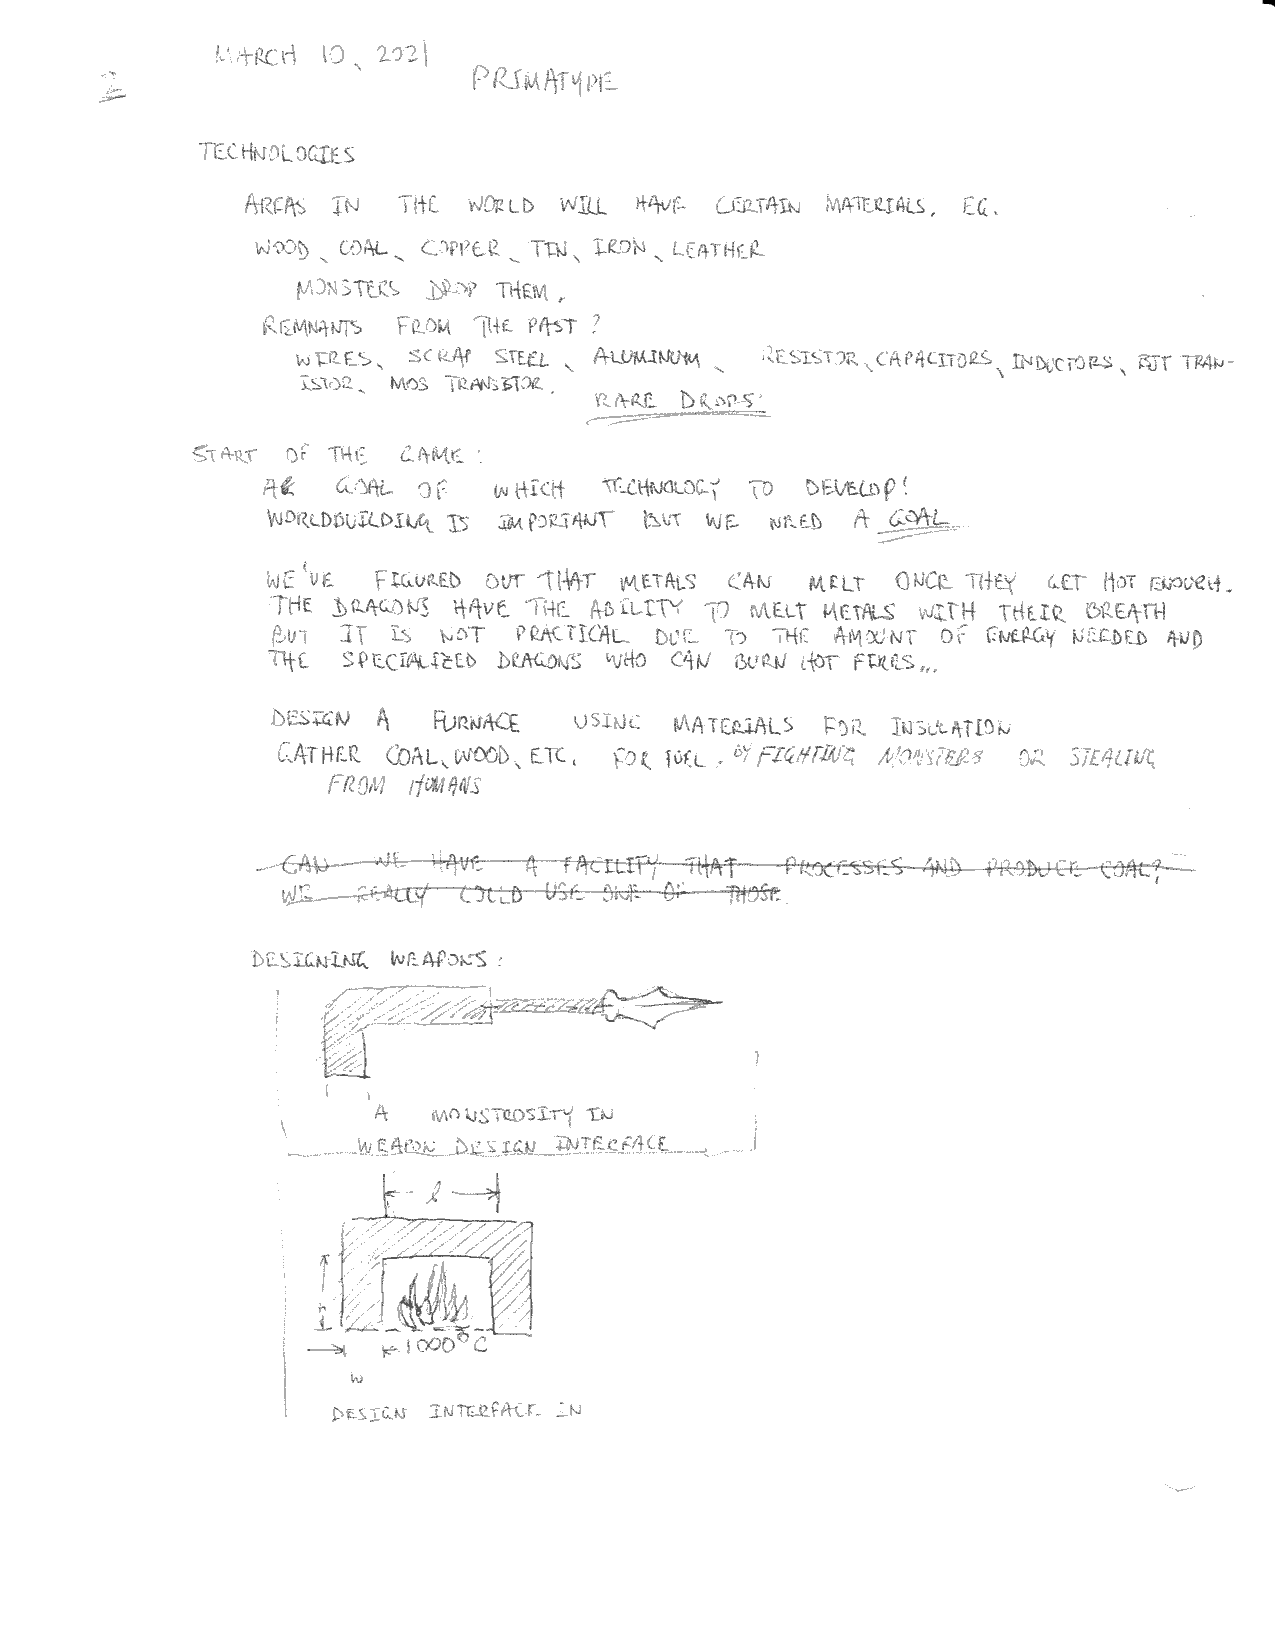 MARCH 10, 2021
2
PRIMATYPE
TECHNOLOGIES
AREAS IN THE WORLD WILL HAVE CERTAIN MATERIALS, EG.
WOOD, COAL, COPPER, TIN, IRON, LEATHER
MONSTERS DROP THEM.
REMNANTS FROM THE PAST?
WIRES, SCRAP STEEL, ALUMINUM, RESISTOR, CAPACITORS, INDUCTORS, BJT TRAN-
ISTOR, MOS TRANSISTOR.
RARE DROPS!
START OF THE GAME:
GOAL OF WHICH TECHNOLOGY TO DEVELOP!
WORLDBUILDING IS IMPORTANT BUT WE NEED A GOAL
WE'VE FIGURED OUT THAT METALS CAN MELT ONCE THEY GET HOT ENOUGH.
THE DRAGONS HAVE THE ABILITY TO MELT METALS WITH THEIR BREATH
BUT IT IS NOT PRACTICAL DUE TO THE AMOUNT OF ENERGY NEEDED AND
THE SPECIALIZED DRAGONS WHO CAN BURN HOT FIRES...
DESIGN A FURNACE USING MATERIALS FOR INSULATION
GATHER COAL, WOOD, ETC. FOR FUEL. BY FIGHTING MONSTERS OR STEALING
FROM HUMANS
CAN WE HAVE A FACILITY THAT PROCESSES AND PRODUCE COAL?
WE REALLY COULD USE ONE OF THOSE.
DESIGNING WEAPONS:
A MONSTROSITY IN
WEAPON DESIGN INTERFACE
l
h
1000°C
w
DESIGN INTERFACE IN